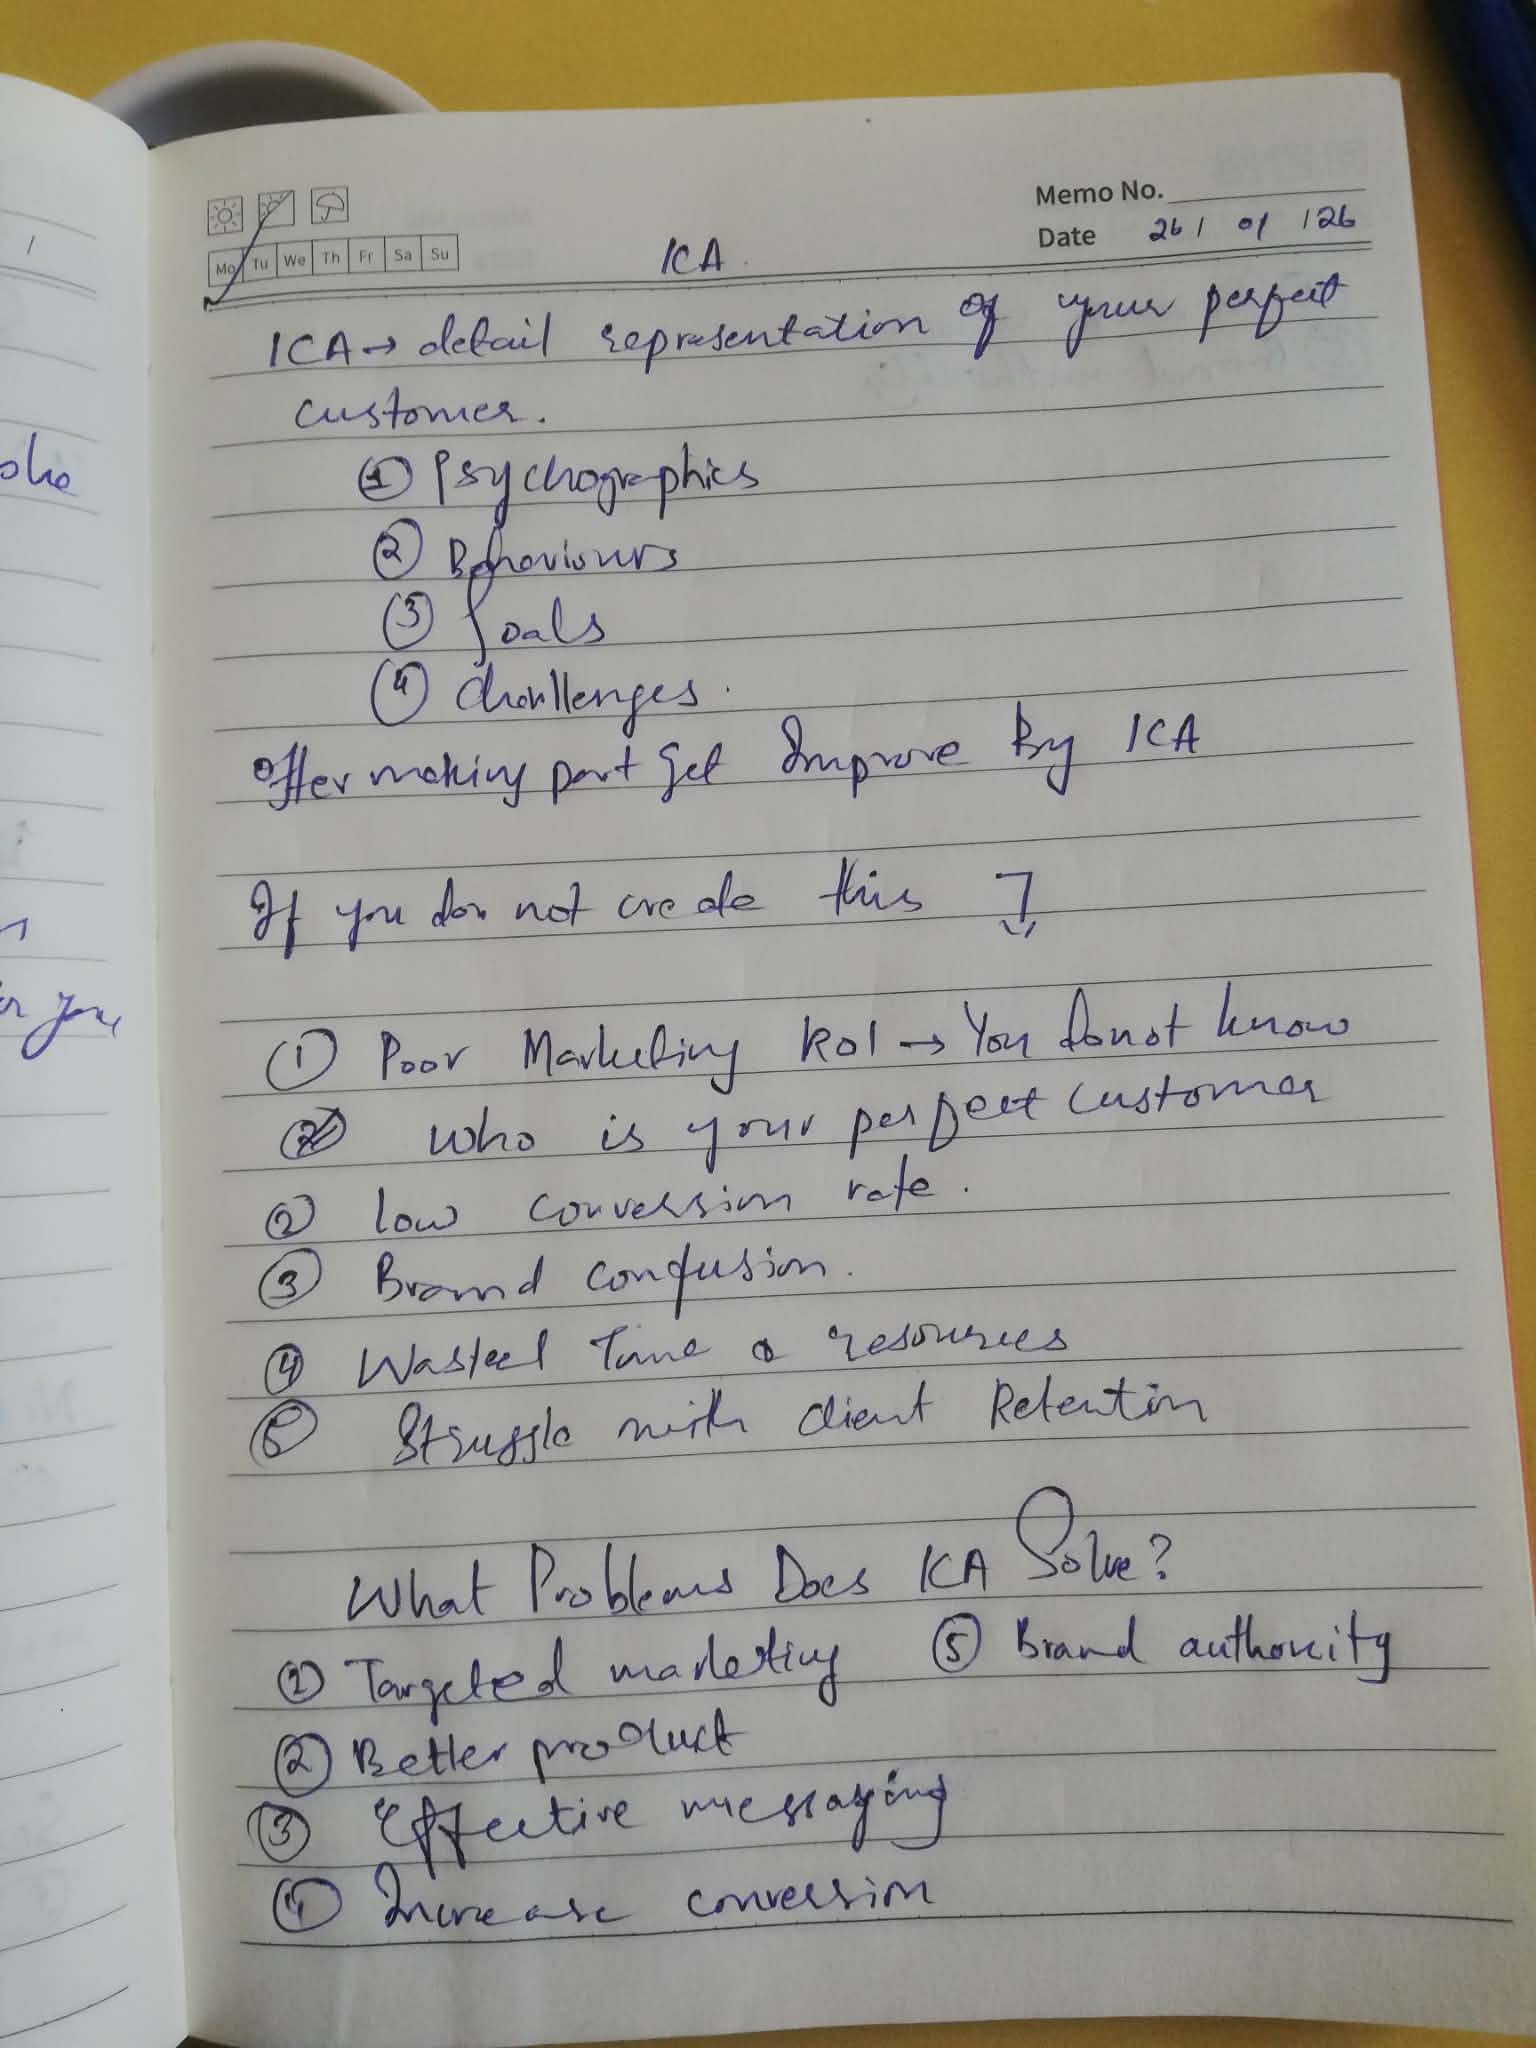 Memo No.
Date 26 / 01 / 26
Mo Tu We Th Fr Sa Su
ICA
ICA → detail representation of your perfect
customer.
① Psychographics
② Behaviours
③ Goals
④ Challenges.
Offer making part get Improve By ICA
If you don not create this
① Poor Marketing ROI → You donot know
② who is your perfect customer
② low conversion rate.
③ Brand confusion.
④ Wasted Time & resources
⑤ Struggle with client Retention
What Problems Does ICA Solve?
① Targeted marketing ⑤ Brand authority
② Better product
③ Effective messaging
④ Increase conversion